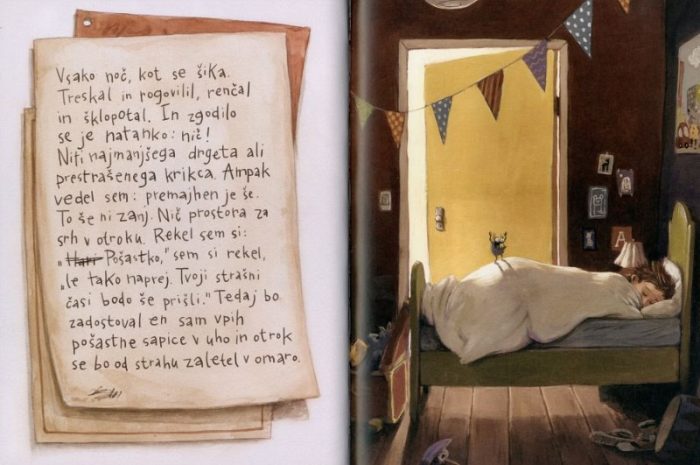 Vsako noč, kot se šika.
Treskal in rogovilil, renčal
in šklopotal. In zgodilo
se je natanko: nič!
Niti najmanjšega drgeta ali
prestrašenega krikca. Ampak
vedel sem: premajhen je še.
To še ni zanj. Nič prostora za
srh v otroku. Rekel sem si:
„Hari Pošastko,“ sem si rekel,
„le tako naprej. Tvoji strašni
časi bodo še prišli.“ Tedaj bo
zadostoval en sam vpih
pošastne sapice v uho in otrok
se bo od strahu zaletel v omaro.
A